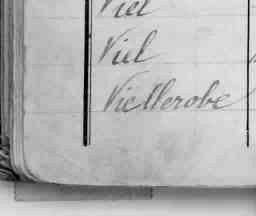 Viel
Viel
Viellerobe